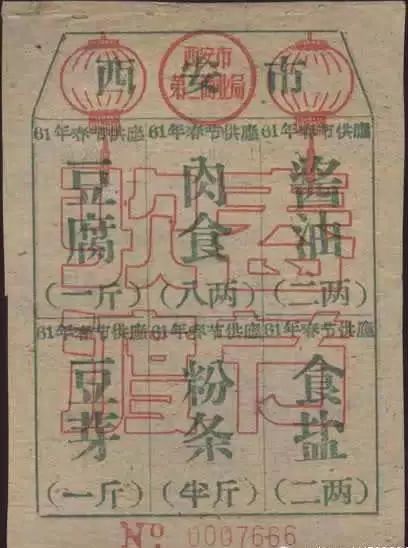 西安市
西安市
第二商业局
61年春节供應 61年春节供應 61年春节供應
豆腐 肉食 酱油
(一斤) (八两) (二两)
61年春节供應 61年春节供應 61年春节供應
豆芽 粉条 食盐
(一斤) (半斤) (二两)
欢度春节
No 0007666